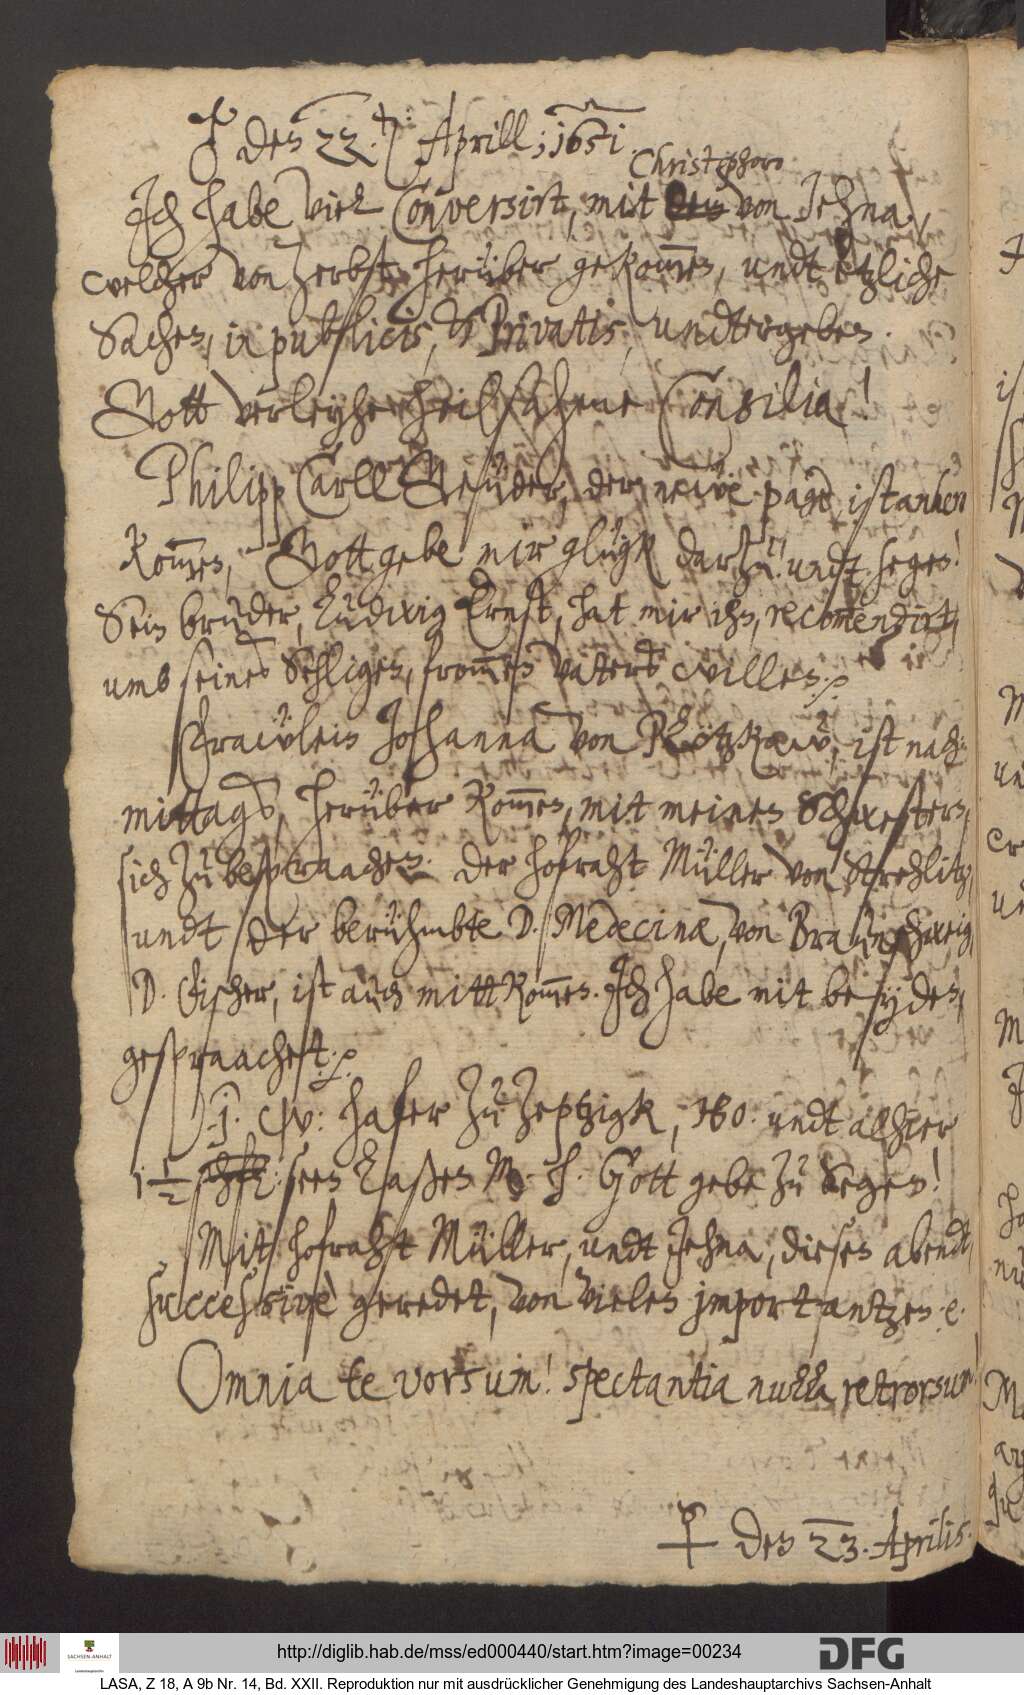 ♂ den 22.ten: Aprill; 1651.
Christophoro
Ich habe viel Conversirt, mit den von Jehna,
welcher von Zerbst, herüber gekom̄en, undt etzliche
Sachen, in publicis, & Privatis, undtergeben.
Gott verleyhe heilsahme Consilia!
Philipp Carll Geüder, der newe page, ist anhero
kom̄en, Gott gebe mir glügk darzu! undt segen!
Sein bruder, Ludwig Ernst, hat mir ihn, recom̄endirt,
umb seines Sehligen, from̄en vaters willen.
Frawlein Johanna von Plötzkaw, ist nach-
mittags, herüber kom̄en, mit meinen Schwestern,
sich zu bespraachen. Der hofraht Müller von Strehlitz,
undt der berühmbte D. Medecinæ, von Braunschweig,
D. Fischer, ist auch mitt kom̄en. Ich habe mit beyden,
gespraachet.
J. W: hafer zu Zeptzigk, 160. undt alhier
1 1/2 seen laßen Gott gebe zu Segen!
Mit hofraht Müller, undt Jehna, diesen abendt,
successive geredet, von vielen importantzen.
Omnia te vorsum! spectantia nulla retrorsum!
den 23. Aprilis.
http://diglib.hab.de/mss/ed000440/start.htm?image=00234
SACHSEN-ANHALT
DFG
LASA, Z 18, A 9b Nr. 14, Bd. XXII. Reproduktion nur mit ausdrücklicher Genehmigung des Landeshauptarchivs Sachsen-Anhalt